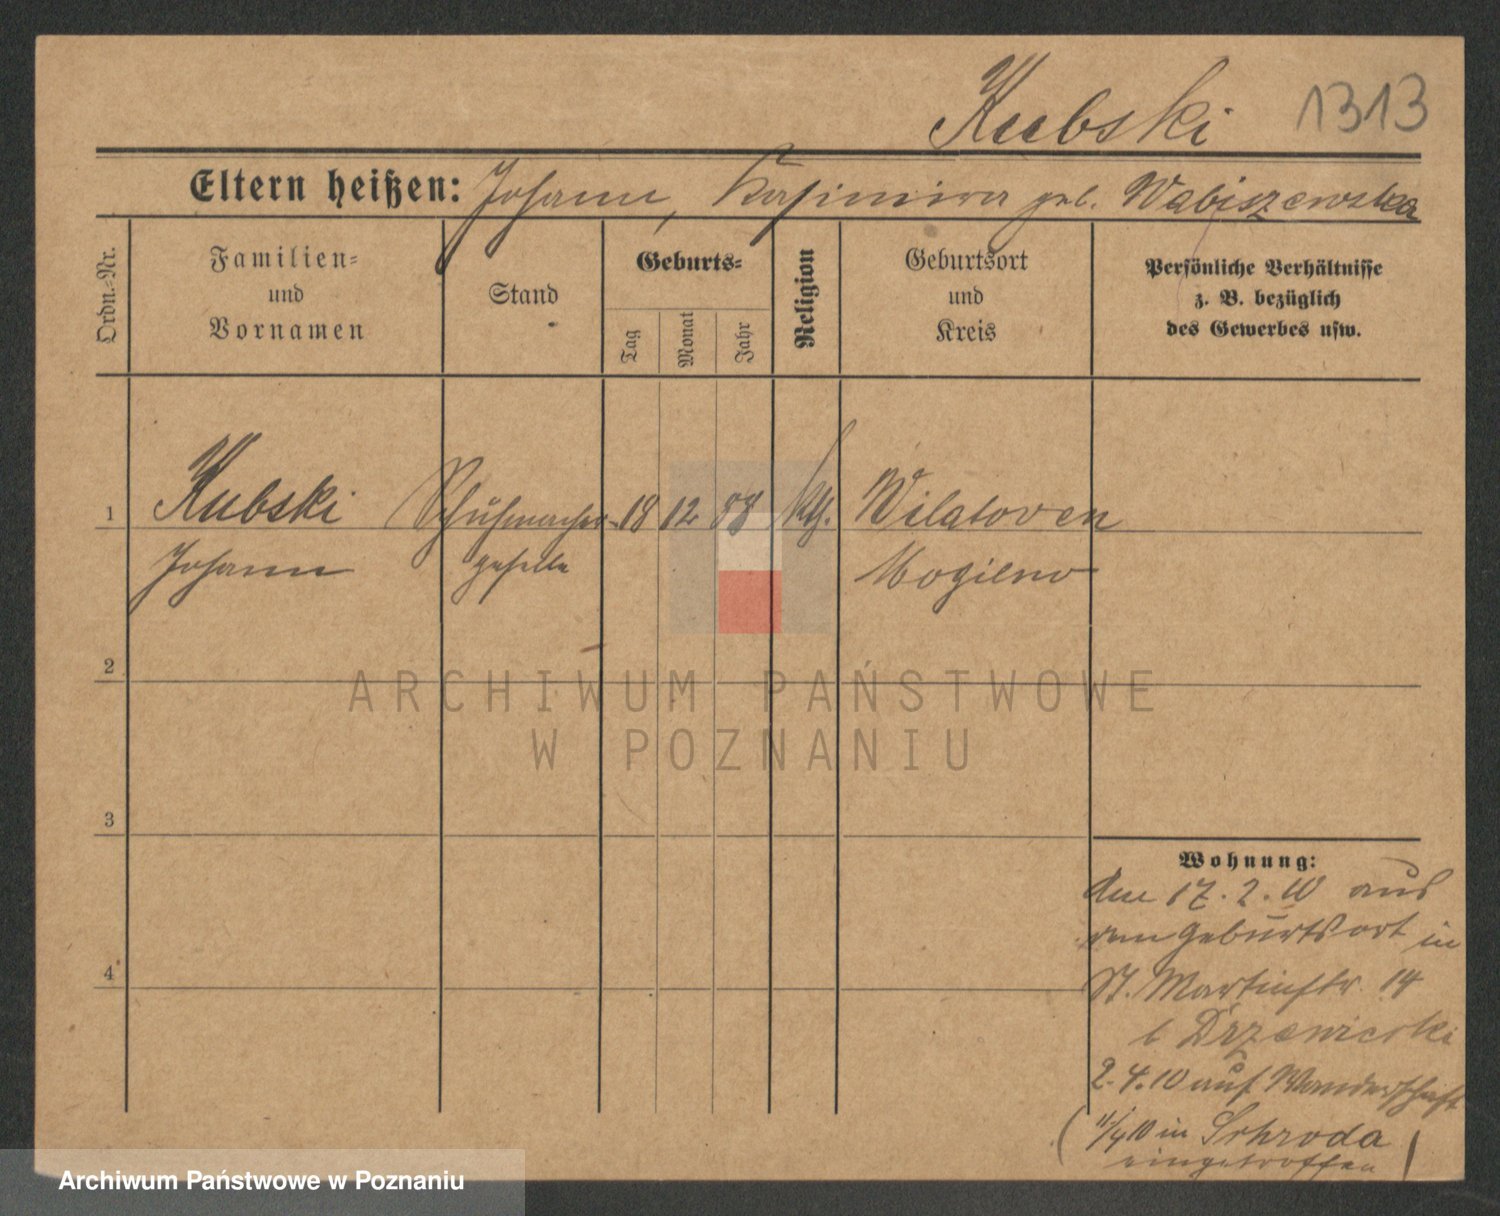 Kubski 1313
Eltern heißen: Johann, Kasimira geb. Wabiszewska
Ordn.-Nr.
Familien-
und
Vornamen
Stand
Geburts-
Tag
Monat
Jahr
Religion
Geburtsort
und
Kreis
Persönliche Verhältnisse
z. B. bezüglich
des Gewerbes usw.
1 Kubski Schuhmacher- 18 12 88 kth. Wilatowen
Johann geselle Mogilno
2
ARCHIWUM PAŃSTWOWE
W POZNANIU
3
Wohnung:
den 17.2.10 aus
dem Geburtsort in
4
St. Martinstr. 14
b
2.4.10 auf Wanderschaft
(11/4 10 in Schroda
eingetroffen)
Archiwum Państwowe w Poznaniu